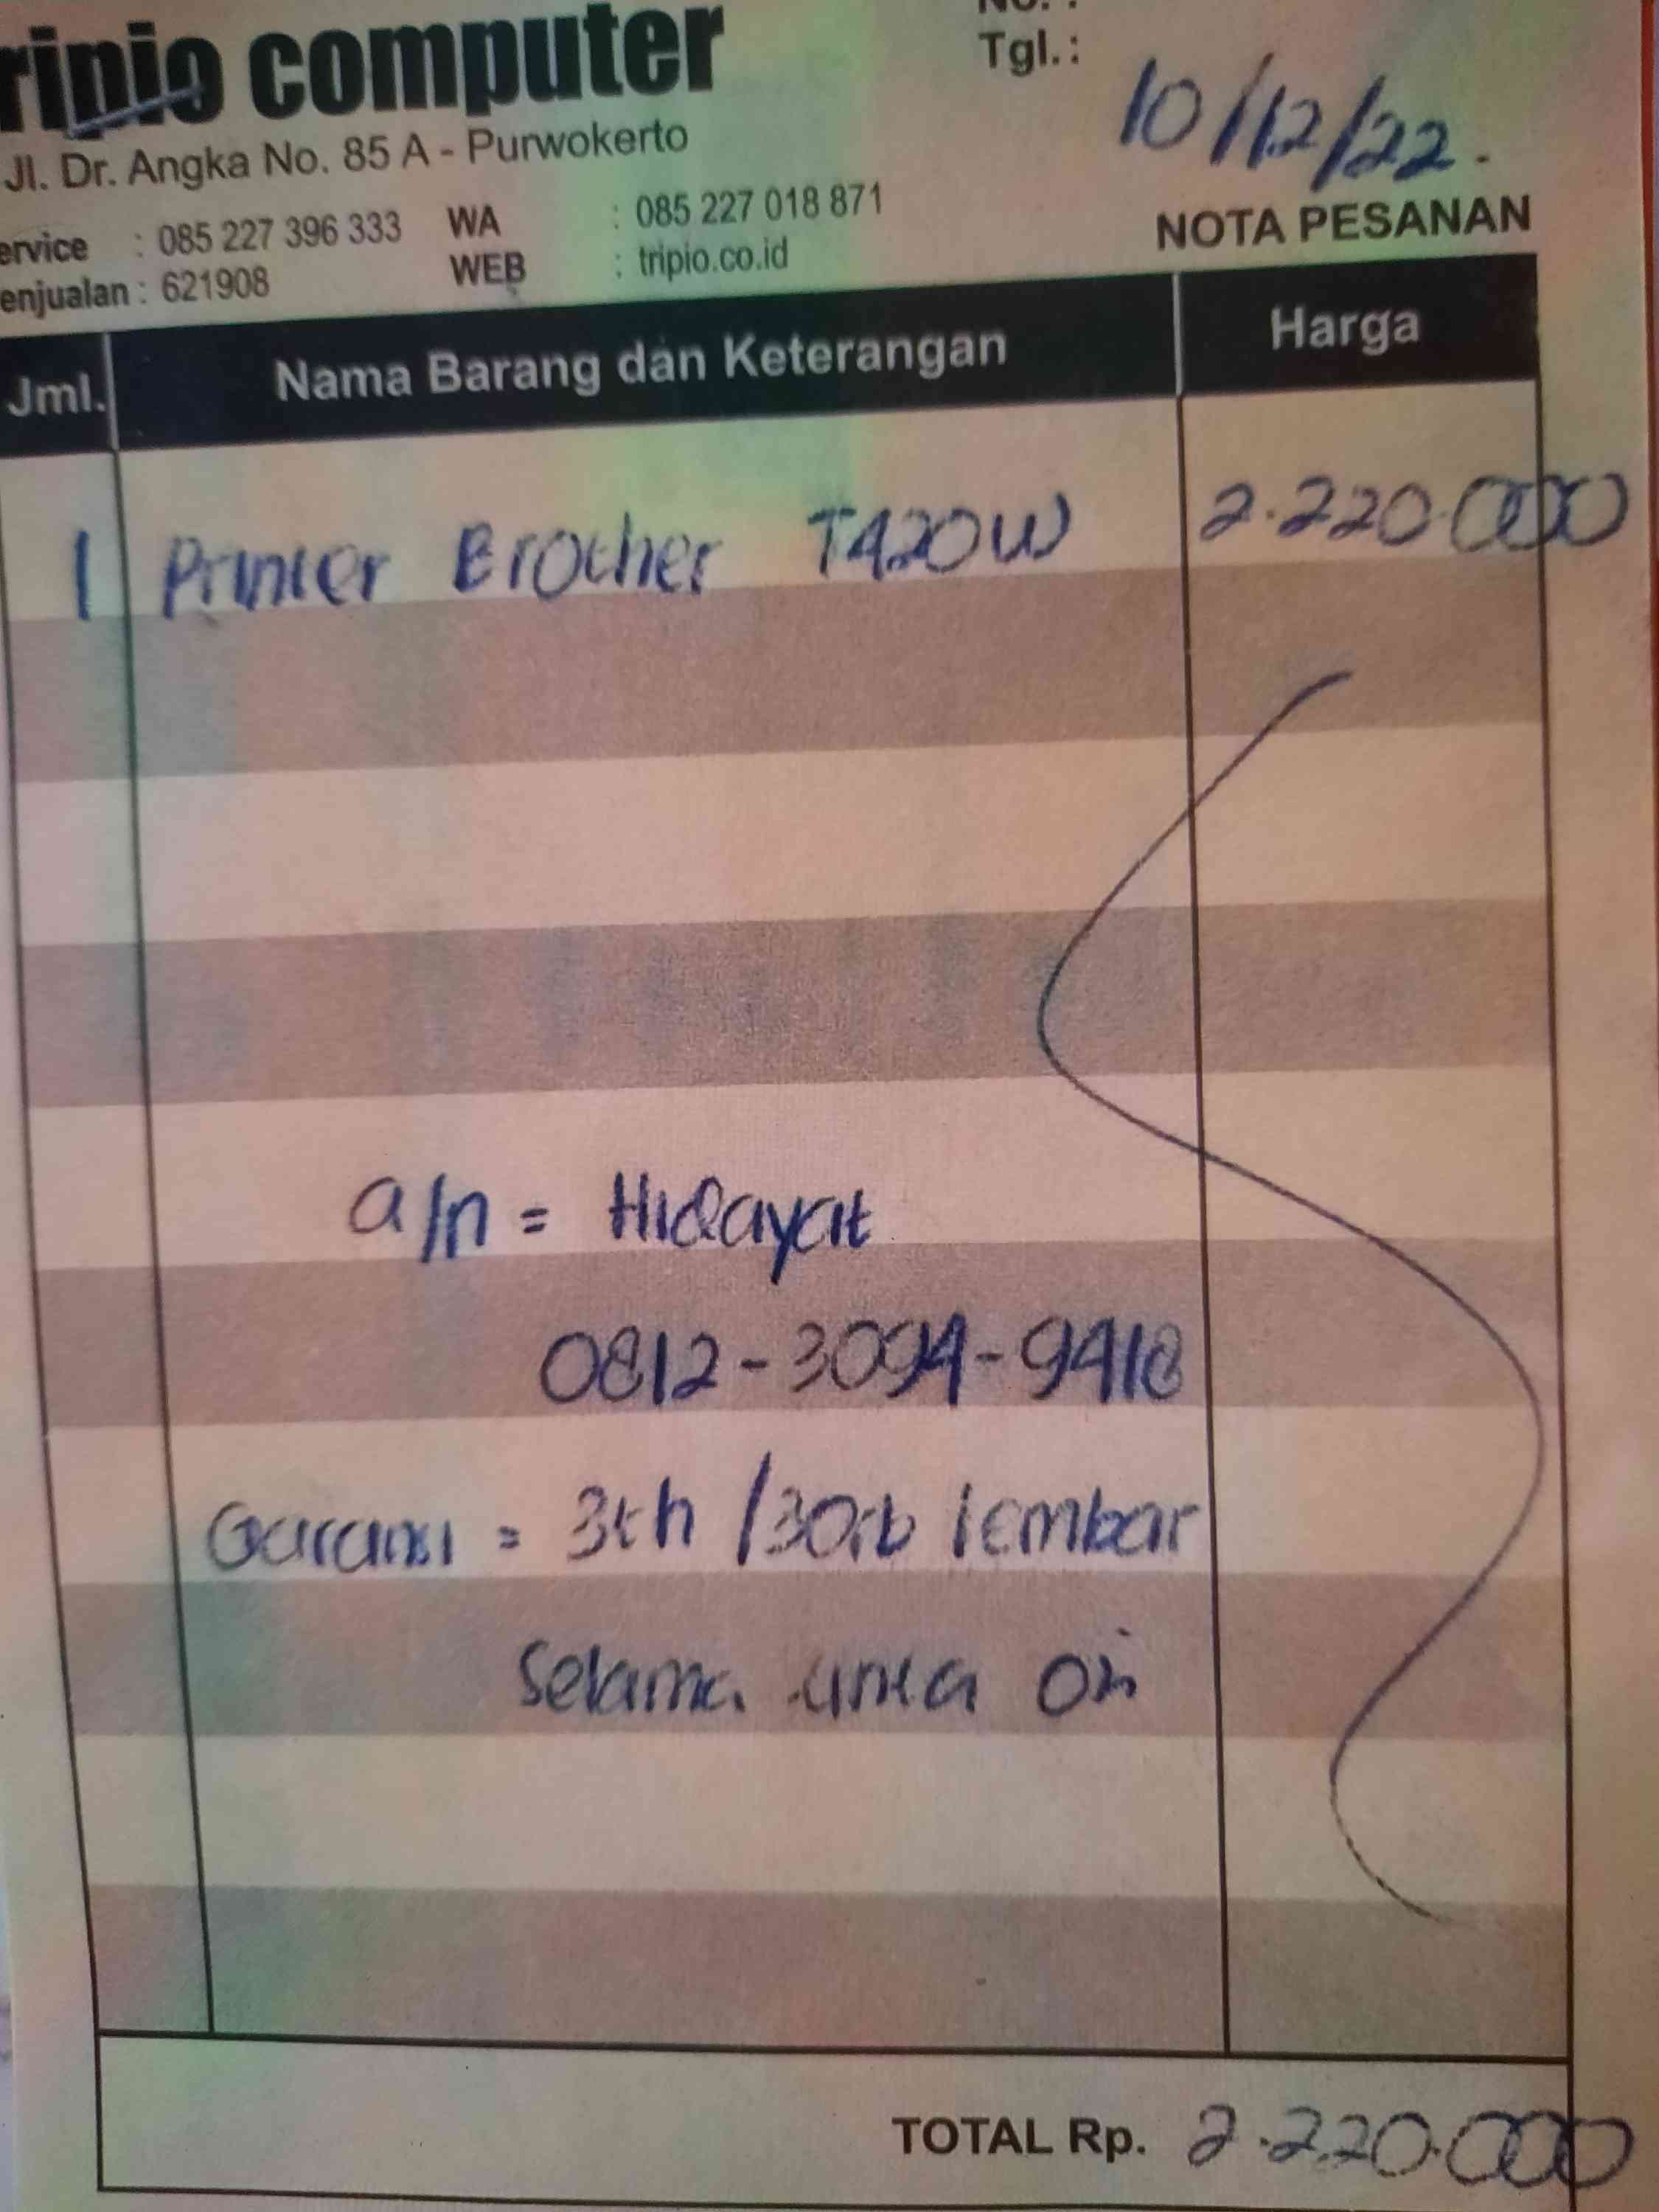 ripio computer
No. :
Tgl. : 10/12/22.
Jl. Dr. Angka No. 85 A - Purwokerto
ervice : 085 227 396 333 WA : 085 227 018 871
enjualan : 621908 WEB : tripio.co.id
NOTA PESANAN
Jml. Nama Barang dan Keterangan Harga
1 Printer Brother T420W 2.220.000
a/n = Hidayat
0812-3094-9418
Garansi = 3th /30rb lembar
Selama tinta ori
TOTAL Rp. 2.220.000